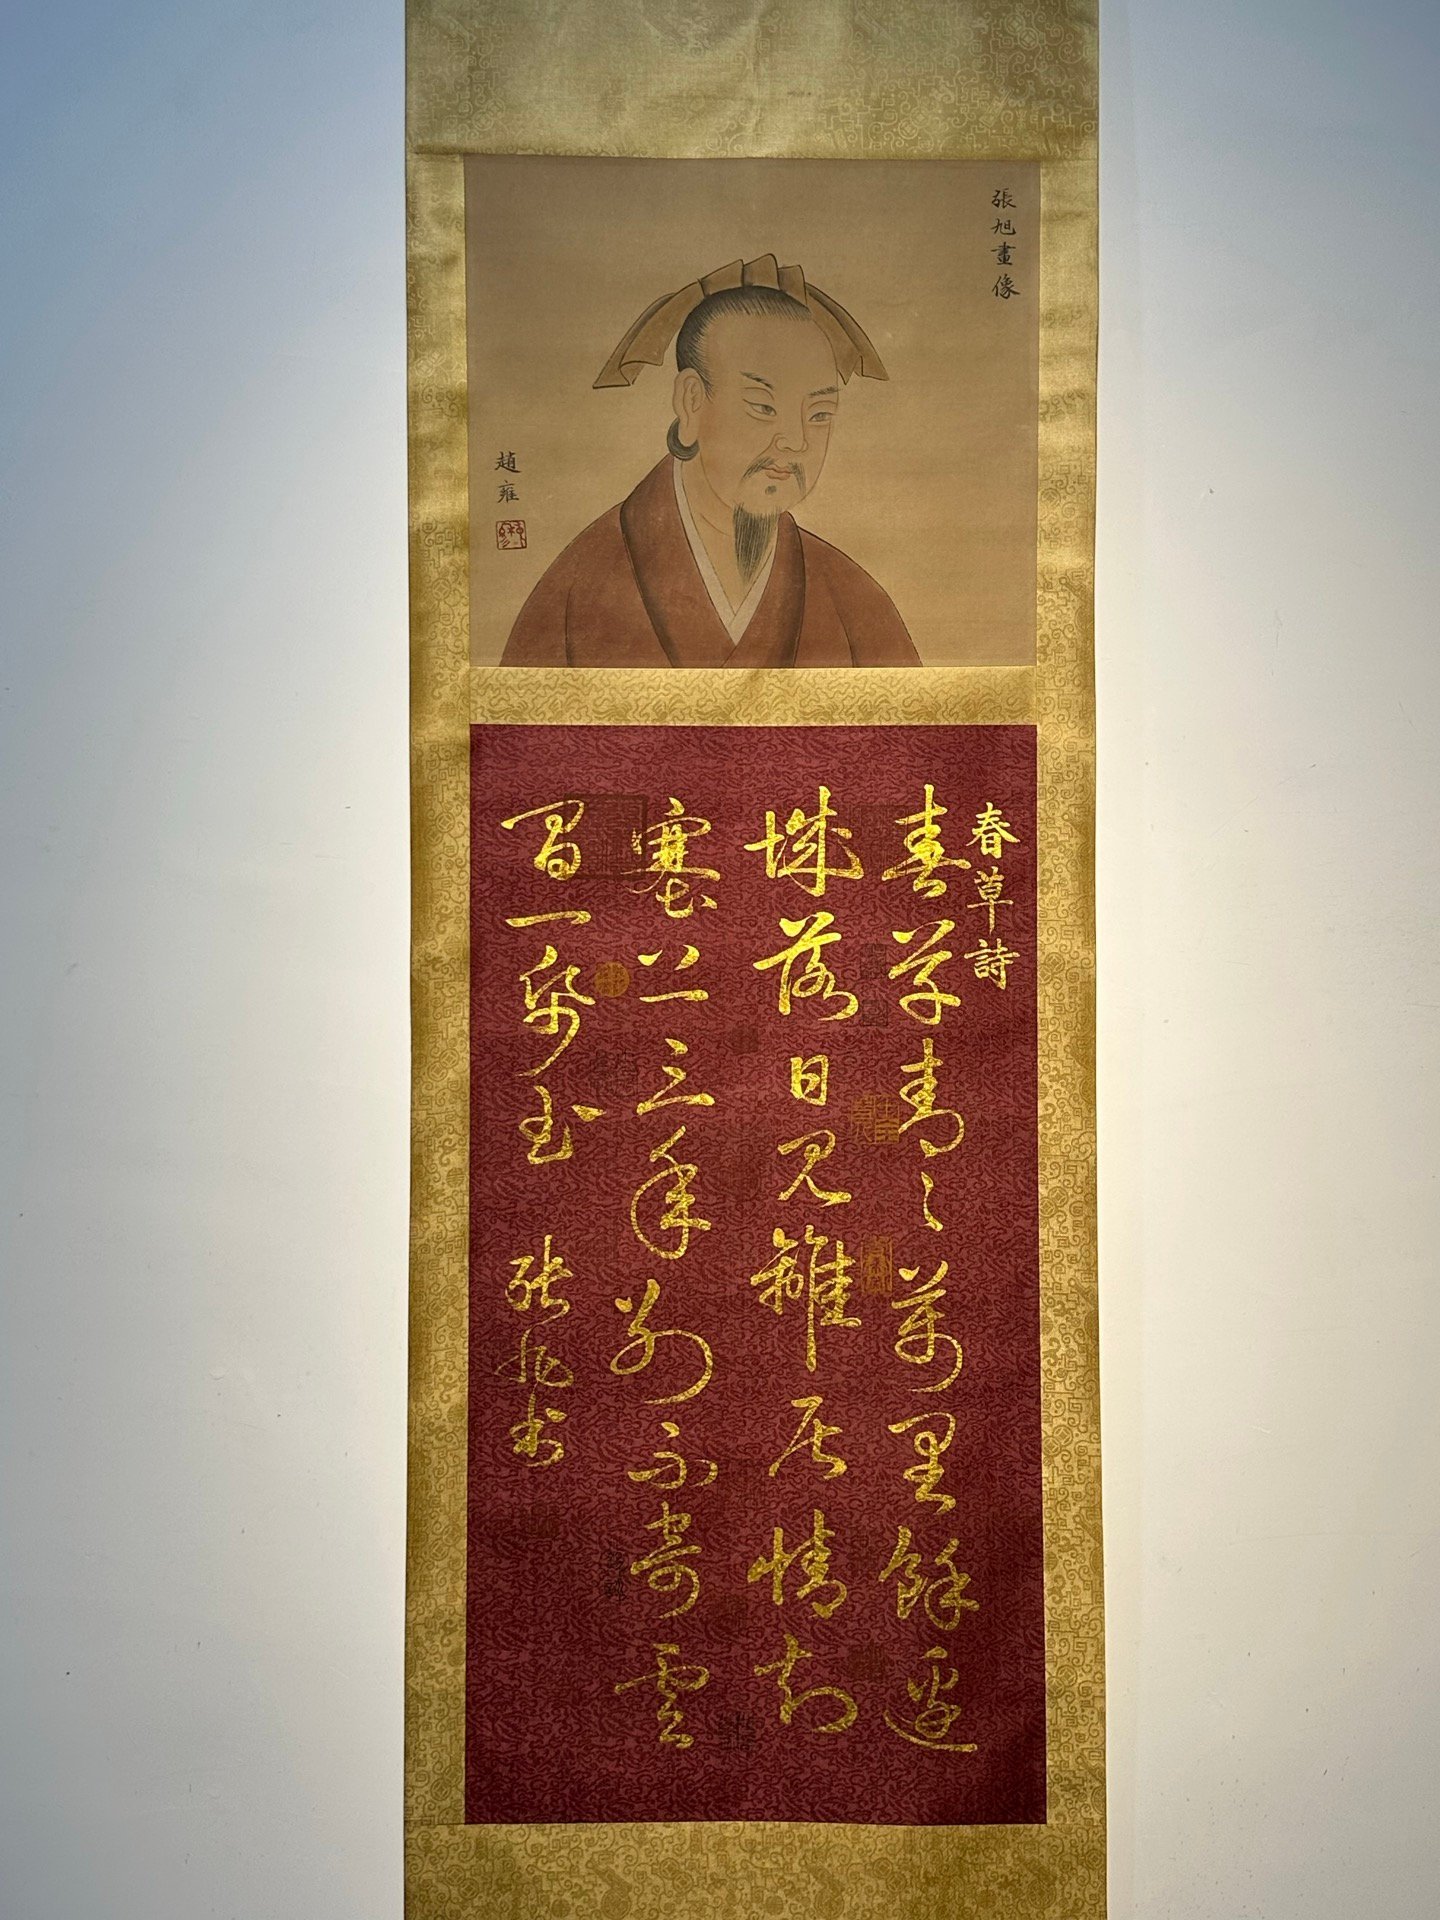 張旭畫像
趙雍
春草詩
春草青〻萬里餘邊
城落日見離居情知
塞上三年別不寄雲
間一紙書 張旭書